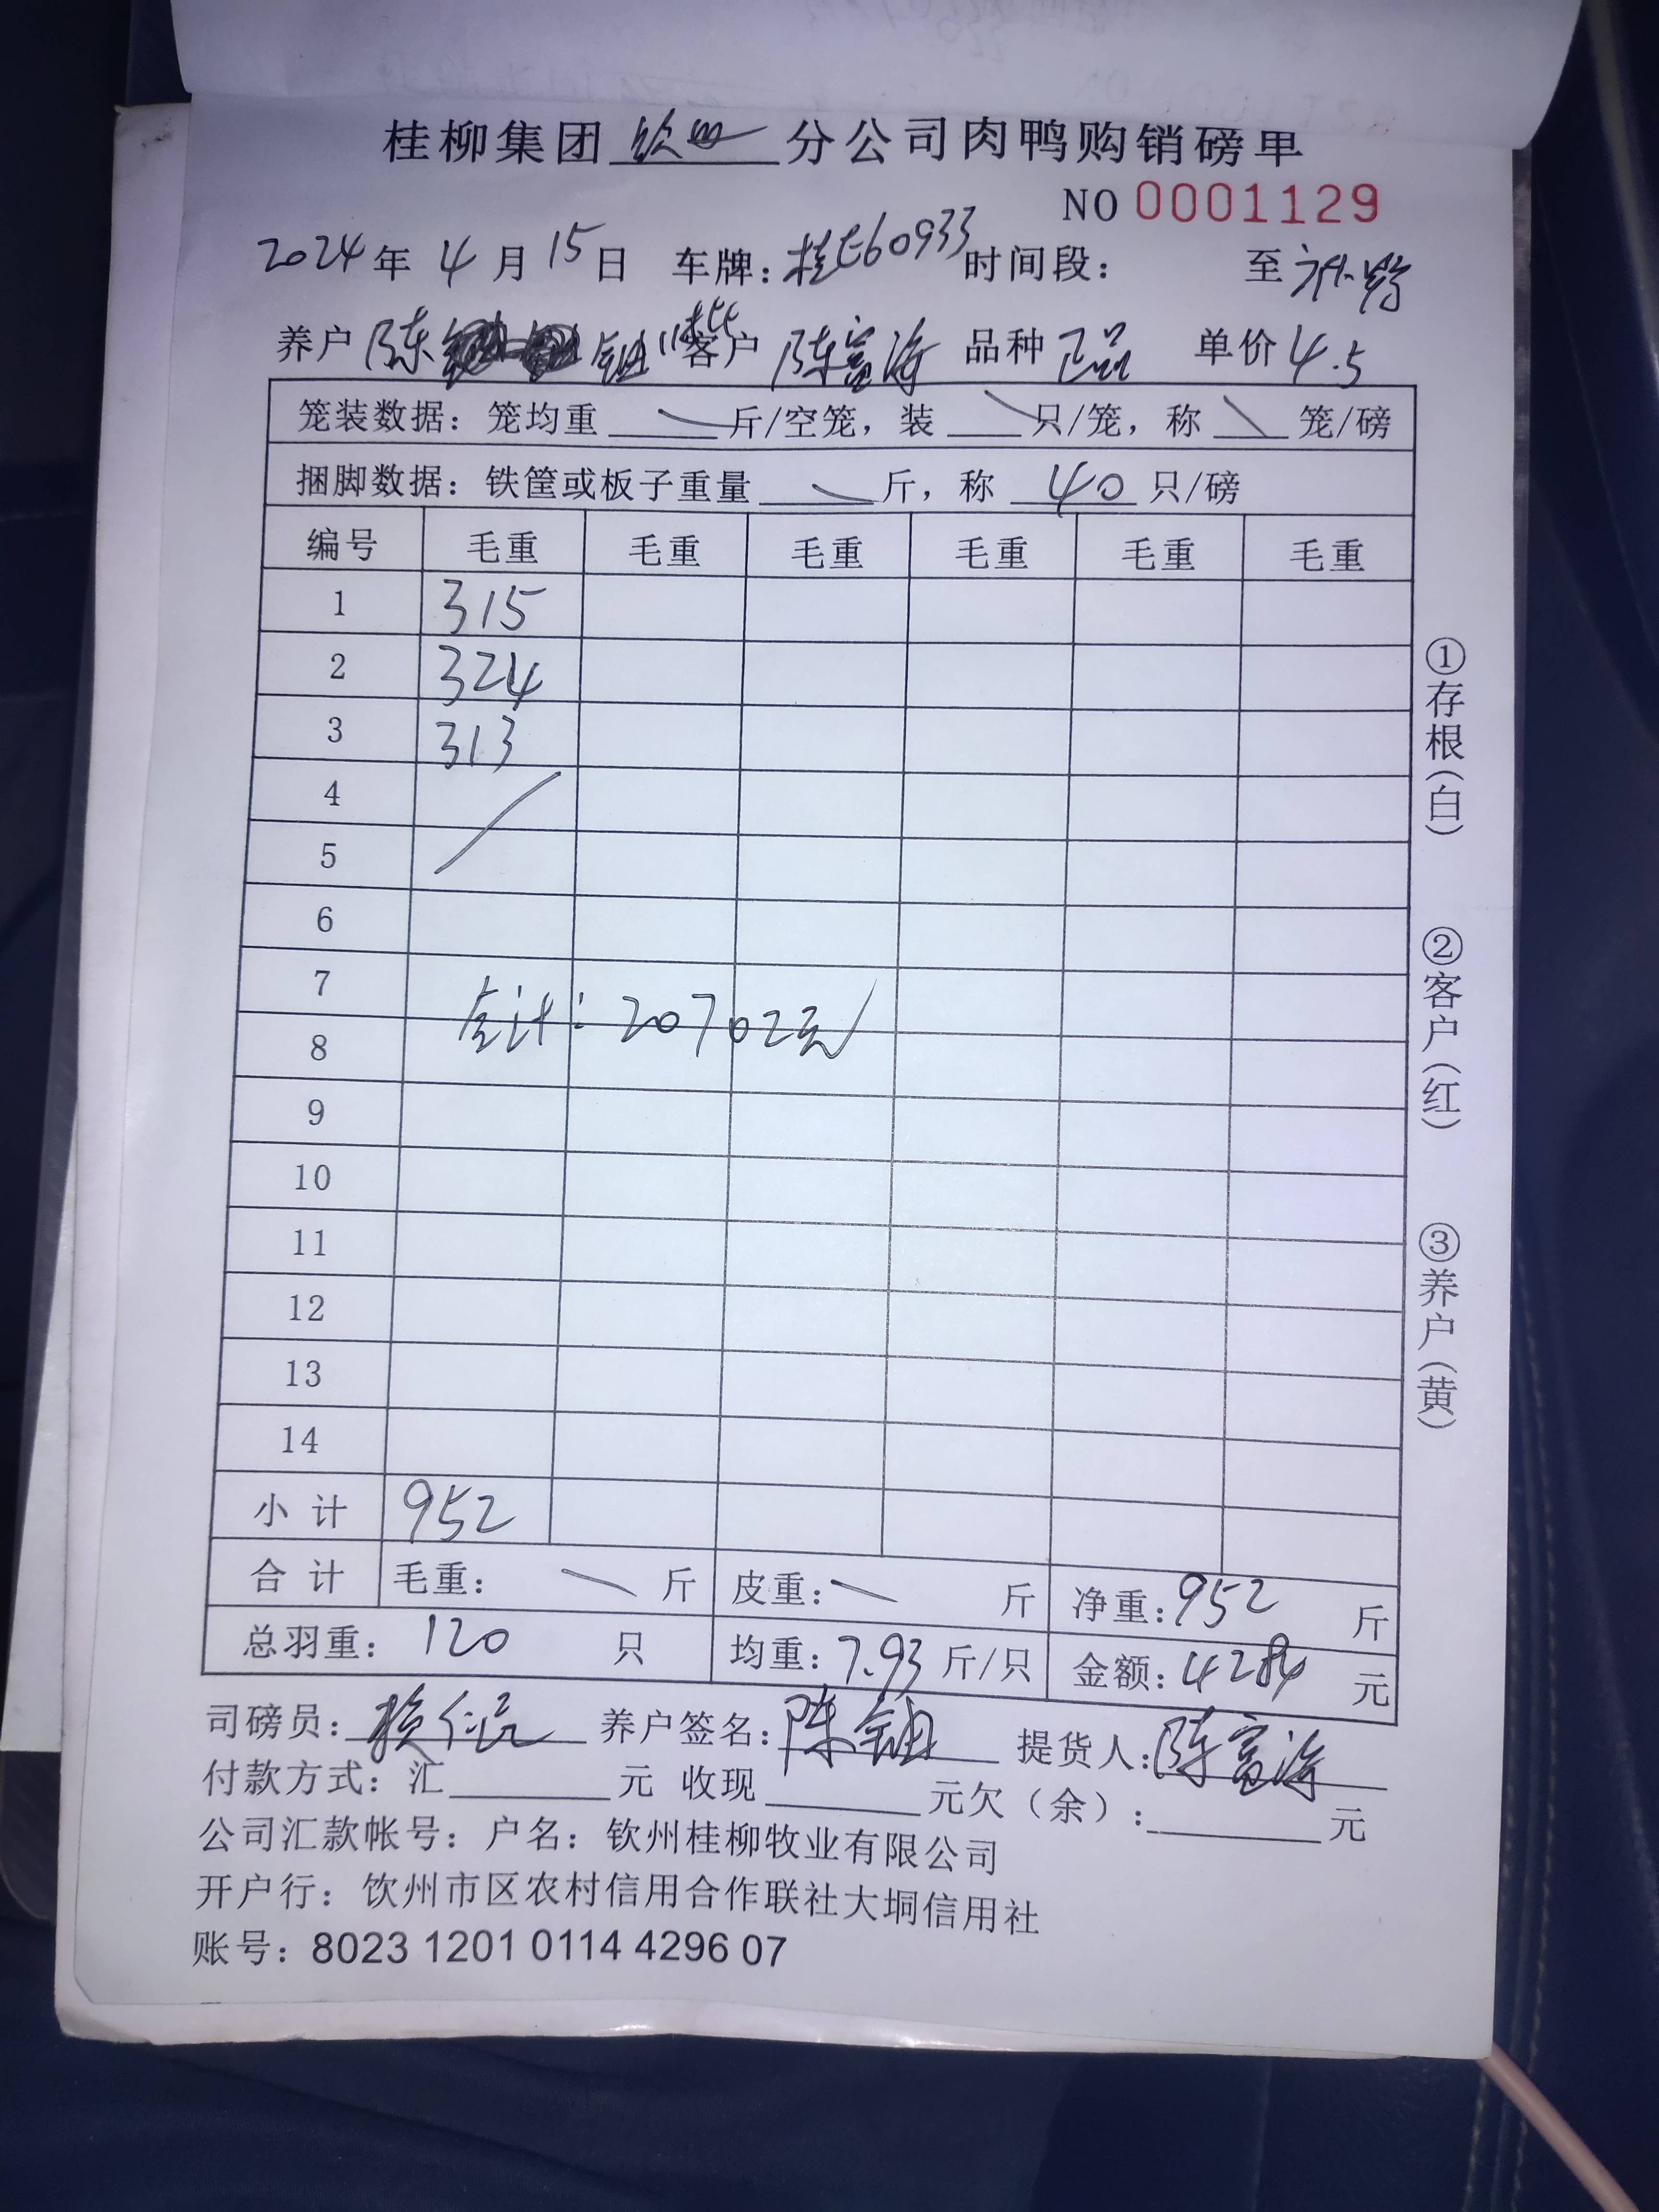 桂柳集团 钦州 分公司肉鸭购销磅单
NO 0001129
2024年 4月 15日 车牌：桂E60933 时间段： 至
养户 陈 客户 陈富海 品种 正品 单价 4.5
笼装数据：笼均重 斤/空笼，装 只/笼，称 笼/磅
捆脚数据：铁筐或板子重量 斤，称 40 只/磅
编号 毛重 毛重 毛重 毛重 毛重 毛重
1 315
2 324
3 313
4
5
6
7
合计：20702元
8
9
10
11
12
13
14
小计 952
合计 毛重： 斤 皮重： 斤 净重：952 斤
总羽重： 120 只 均重：7.93 斤/只 金额：4284 元
司磅员： 养户签名：陈 提货人：陈富海
付款方式：汇 元 收现 元欠（余）： 元
公司汇款帐号：户名：钦州桂柳牧业有限公司
开户行：饮州市区农村信用合作联社大垌信用社
账号：8023 1201 0114 4296 07
①存根（白）
②客户（红）
③养户（黄）